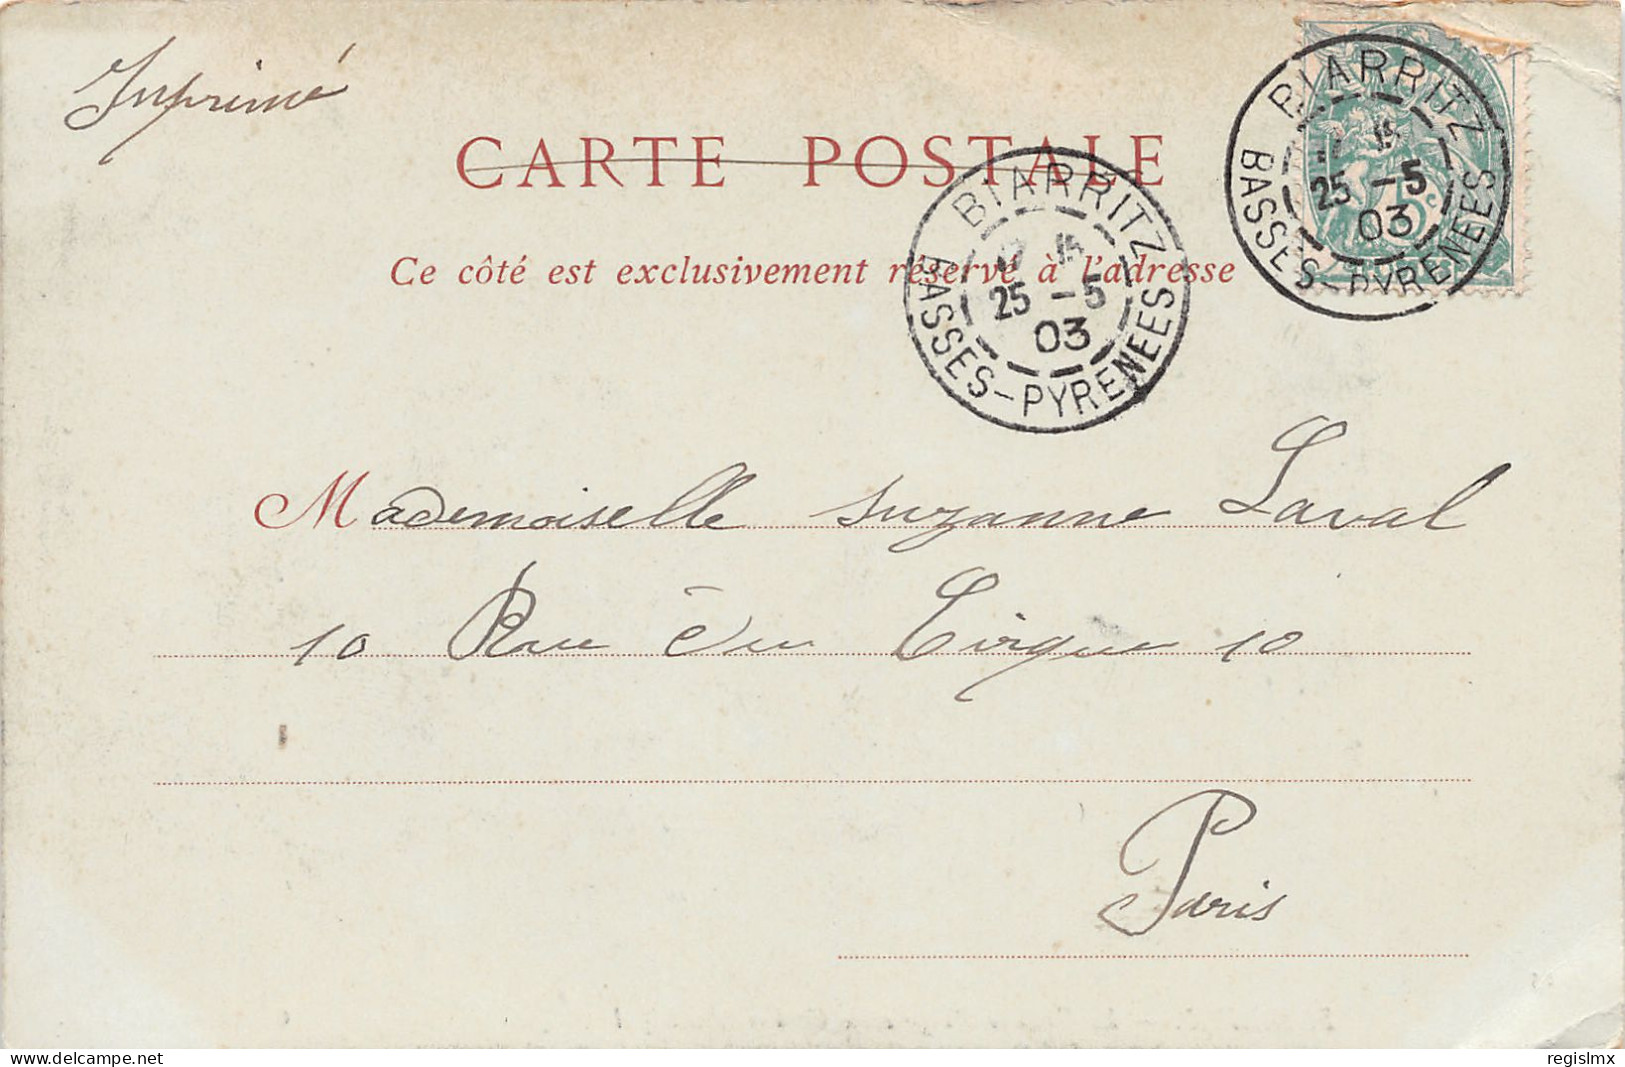 Imprimé
CARTE POSTALE
Ce côté est exclusivement réservé à l'adresse
BIARRITZ
25 -5
03
BASSES-PYRENEES
BIARRITZ
25 -5
03
BASSES-PYRENEES
5c
Mademoiselle Suzanne Laval
10 Rue du Cirque 10
Paris
delcampe.net
regislmx